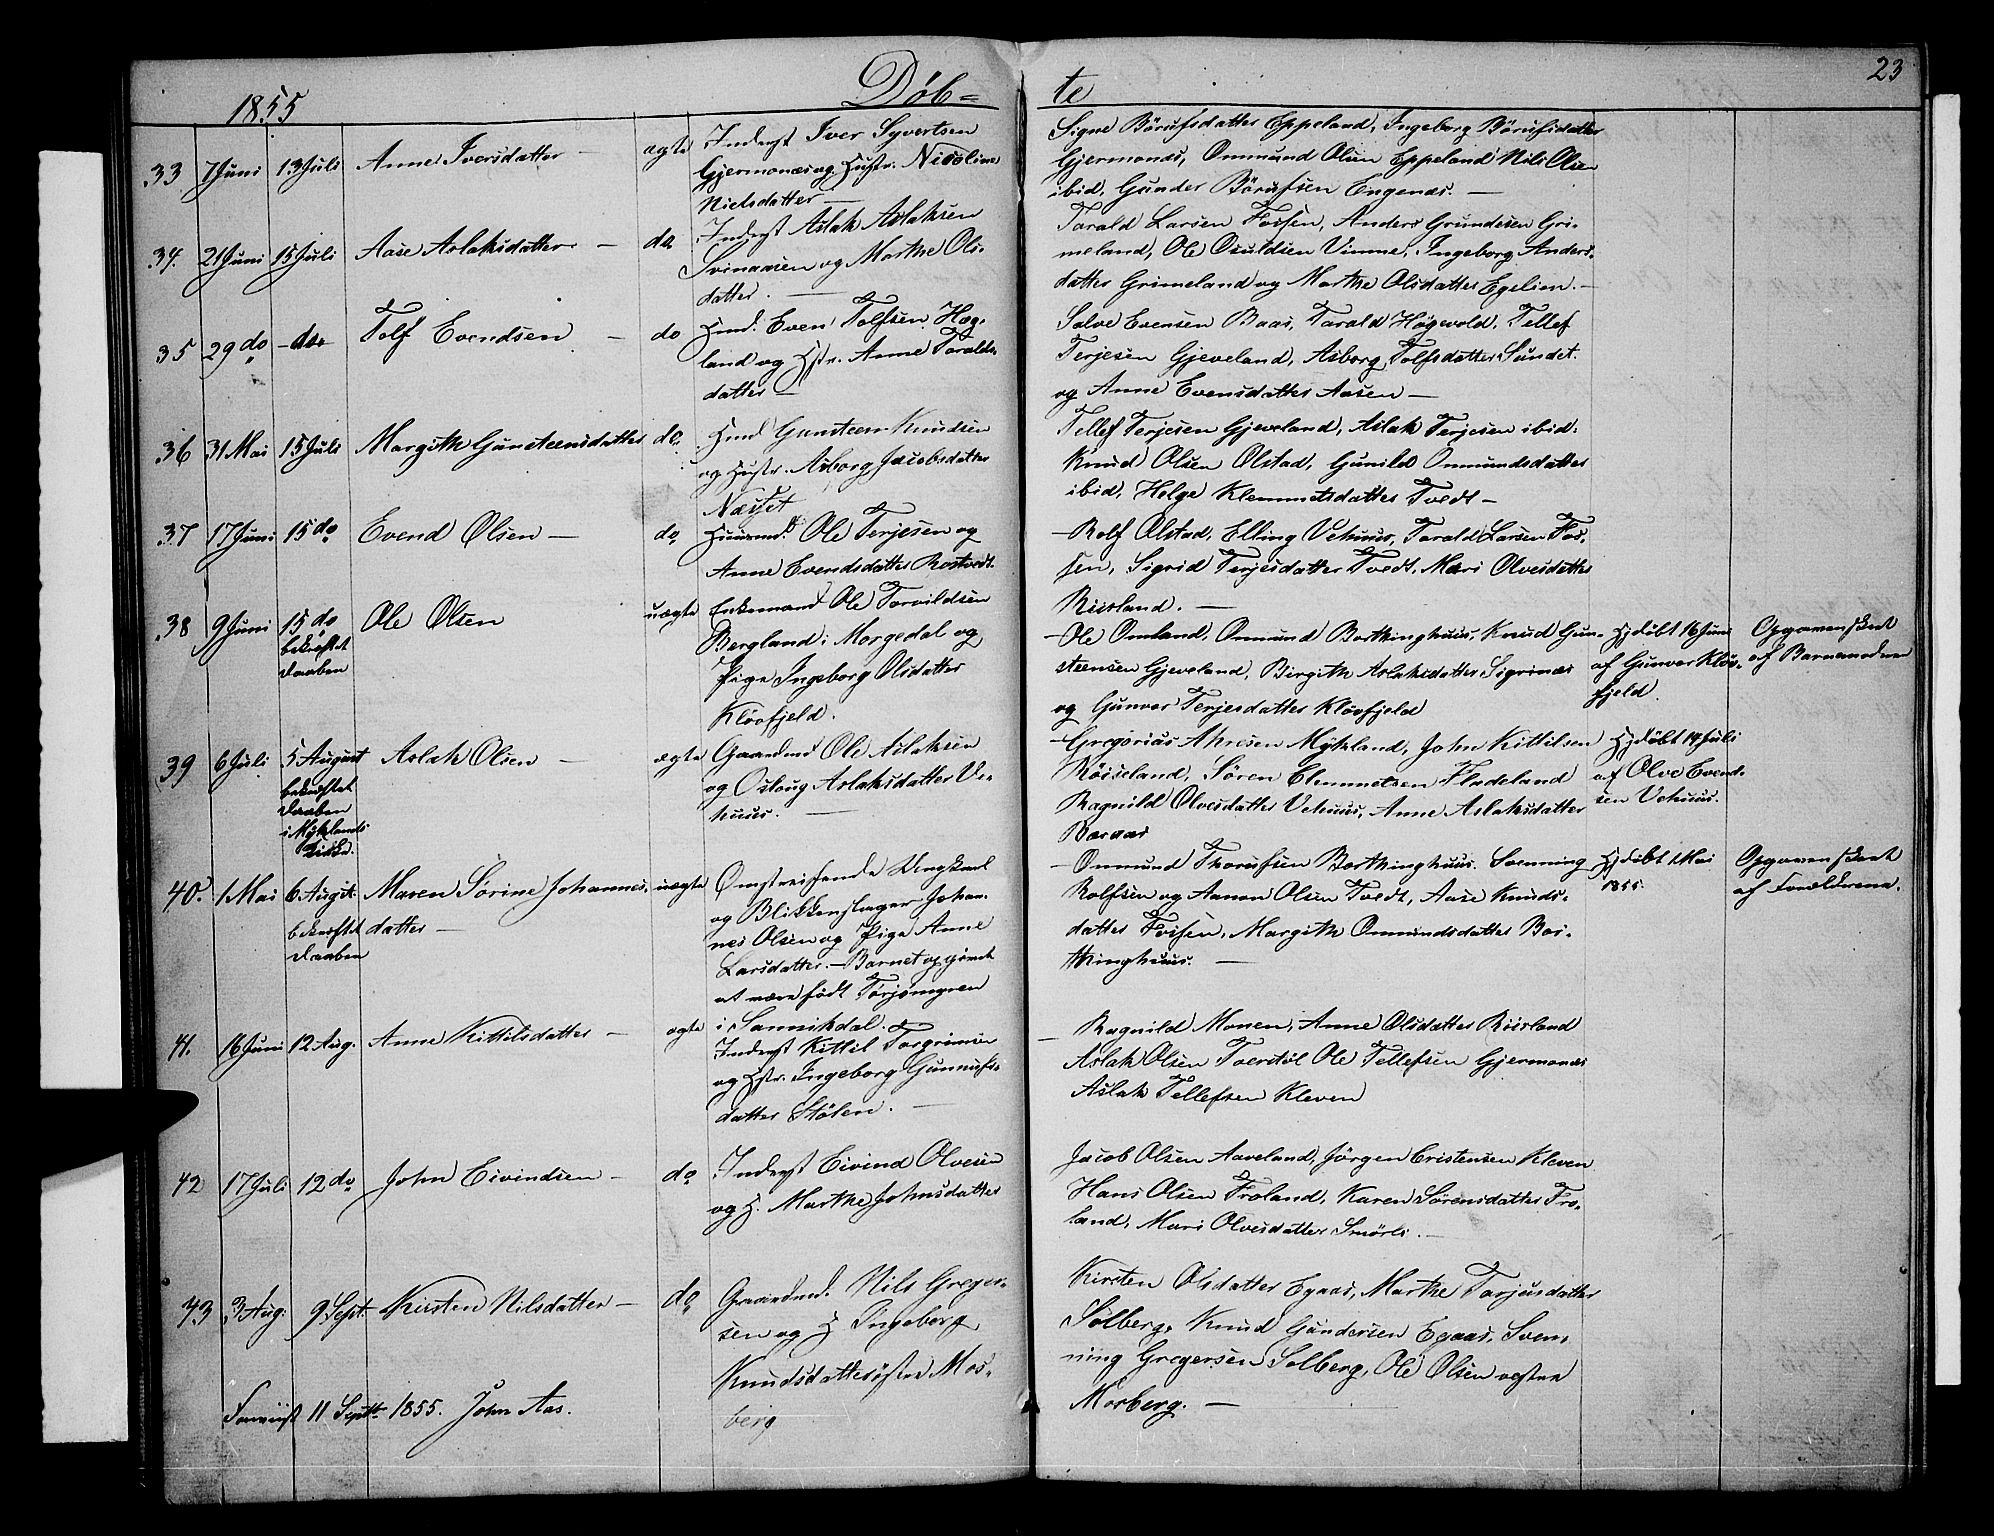 23
1855 Døb= te
33 7 Juni 13 Juli Anne Iversdatter — ægte Inderst Iver Syvertsen
Gjermonæs og Hustr. Nicoline
Nielsdatter —
Signe Börufsdatter Eppeland, Ingeborg Börufsdatter
Gjermonæs, Onmund Olsen Eppeland Nils Olsen
ibid, Gunder Börufsen Engenæs. —
34. 21 Juni 15 Juli Aase Aslaksdatter — do Inderst Aslak Aslaksen
Svinaasen og Marthe Ols-
datter. —
Tarald Larsen Fossen, Anders Grundesen Gri-
meland, Ole Osuldsen Vimme, Ingeborg Anders-
datter Grimeland og Marthe Olsdatter Egelien. —
35 29 do - do Tolf Evendsen — do Hmd. Even Tolfsen Heg-
land og Hstr. Anne Taralds-
datter —
Salve Evensen Baas, Tarald Högevold, Tellef
Terjesen Gjeveland, Asborg Tolfsdatter Sundet.
og Anne Evensdatter Aasen —
36 31 Mai 15 Juli Margith Gunsteensdatter do. Hmd Gunsteen Knudsen
og Hustr. Asborg Jacobsdatter
Næsset
Tellef Terjesen Gjeveland, Aslak Terjesen ibid:
Knud Olsen Olstad, Gunild Onmundsdatter
ibid, Helge Klemmetsdatter Tvedt —
37 17 Juni 15 do Evend Olsen — do Huusmd. Ole Terjesen og
Anne Evendsdatter Rostvedt.
- Rolf Olstad, Elling Vehuus, Tarald Larsen Fos-
sen, Sigrid Terjesdatter Tvedt, Mari Olvesdatter
Riisland. —
38 9 Juni 15 do Ole Olsen uægte Enkemand Ole Torvildsen
bekræftet
Daaben
Bergland i Morgedal og
Pige Ingeborg Olsdatter
Klövfjeld.
- Ole Omland, Onmund Borthinghuus, Knud Gun-
steensen Gjeveland, Birgith Aslaksdatter Sigrinæs
og Gunvor Terjesdatter Klövfjeld
Hjdöbt 16 Juni
af Gunvor Klöv-
fjeld.
Opgaven skeet
af Barnemoderen
39 6 Juli 5 August Aslak Olsen — ægte Gaardmd Ole Aslaksen
bekræftet
Daaben
i Myklands
Kirke.
og Oslaug Aslaksdatter Ve-
huus. —
- Gregorius Ahresen Mykland, John Kittilsen
Röiseland, Sören Clemmetsen Fladeland
Ragnild Olvesdatter Vehuus, Anne Aslaksdatter
Baraas
Hjdöbt 14 Juli
af Olve Evend-
sen Vehuus.
40. 1 Mai 6 August Maren Sorine Johannes- uægte Omstreifende Ungkarl
bekræftet datter —
Daaben
og Blikkenslager Johan-
nes Olsen og Pige Anne
Larsdatter. — Barnet opgivet
at være født Törjömyren
i Sannikdal.
- Onmund Thorufsen Borthinghuus. Svenning
Rolfsen og Aanon Olsen Tvedt, Aase Knuds-
datter Fossen, Margith Onmundsdatter Bor-
thinghuus. —
Hjdöbt 1 Mai
1855.
Opgaven skeet
af Forældrene.
41. 16 Juni 12 Aug. Anne Kittilsdatter — ægte Inderst Kittil Torgrimsen
og Hstr. Ingeborg Gunnufs-
datter Stölen. —
- Ragnild Monen, Anne Olsdatter Riisland
Aslak Olsen Toerstöl Ole Tellefsen Gjermonæs
Aslak Tellefsen Kleven
42 17 Juli 12 do John Eivindsen — do Inderst Eivind Olvesen
og H. Marthe Johnsdatter
Jacob Olsen Aaveland, Jörgen Cristensen Kleven
Hans Olsen Froland, Karen Sörensdatter Fro-
land, Mari Olvesdatter Smörli. —
43 3 Aug. 9 Sept. Kirsten Nilsdatter — do Gaardmd. Nils Greger-
sen og H Ingeborg
Knudsdatter öftre Mos-
berg
Kirsten Olsdatter Egaas, Marthe Tarjesdatter
Solberg, Knud Gundersen Egaas, Sven-
ning Gregersen Solberg, Ole Olsen vestre
Mosberg. —
Foreviist 11 Septbr 1855. John Aas.